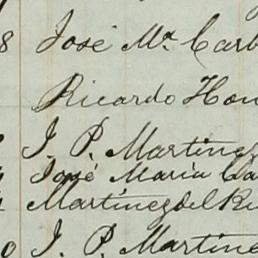 8 José Ma. Carb
Ricardo Hon
J. P. Martinez
José Maria Ca
Martinez del Ri
0 J. P. Martine